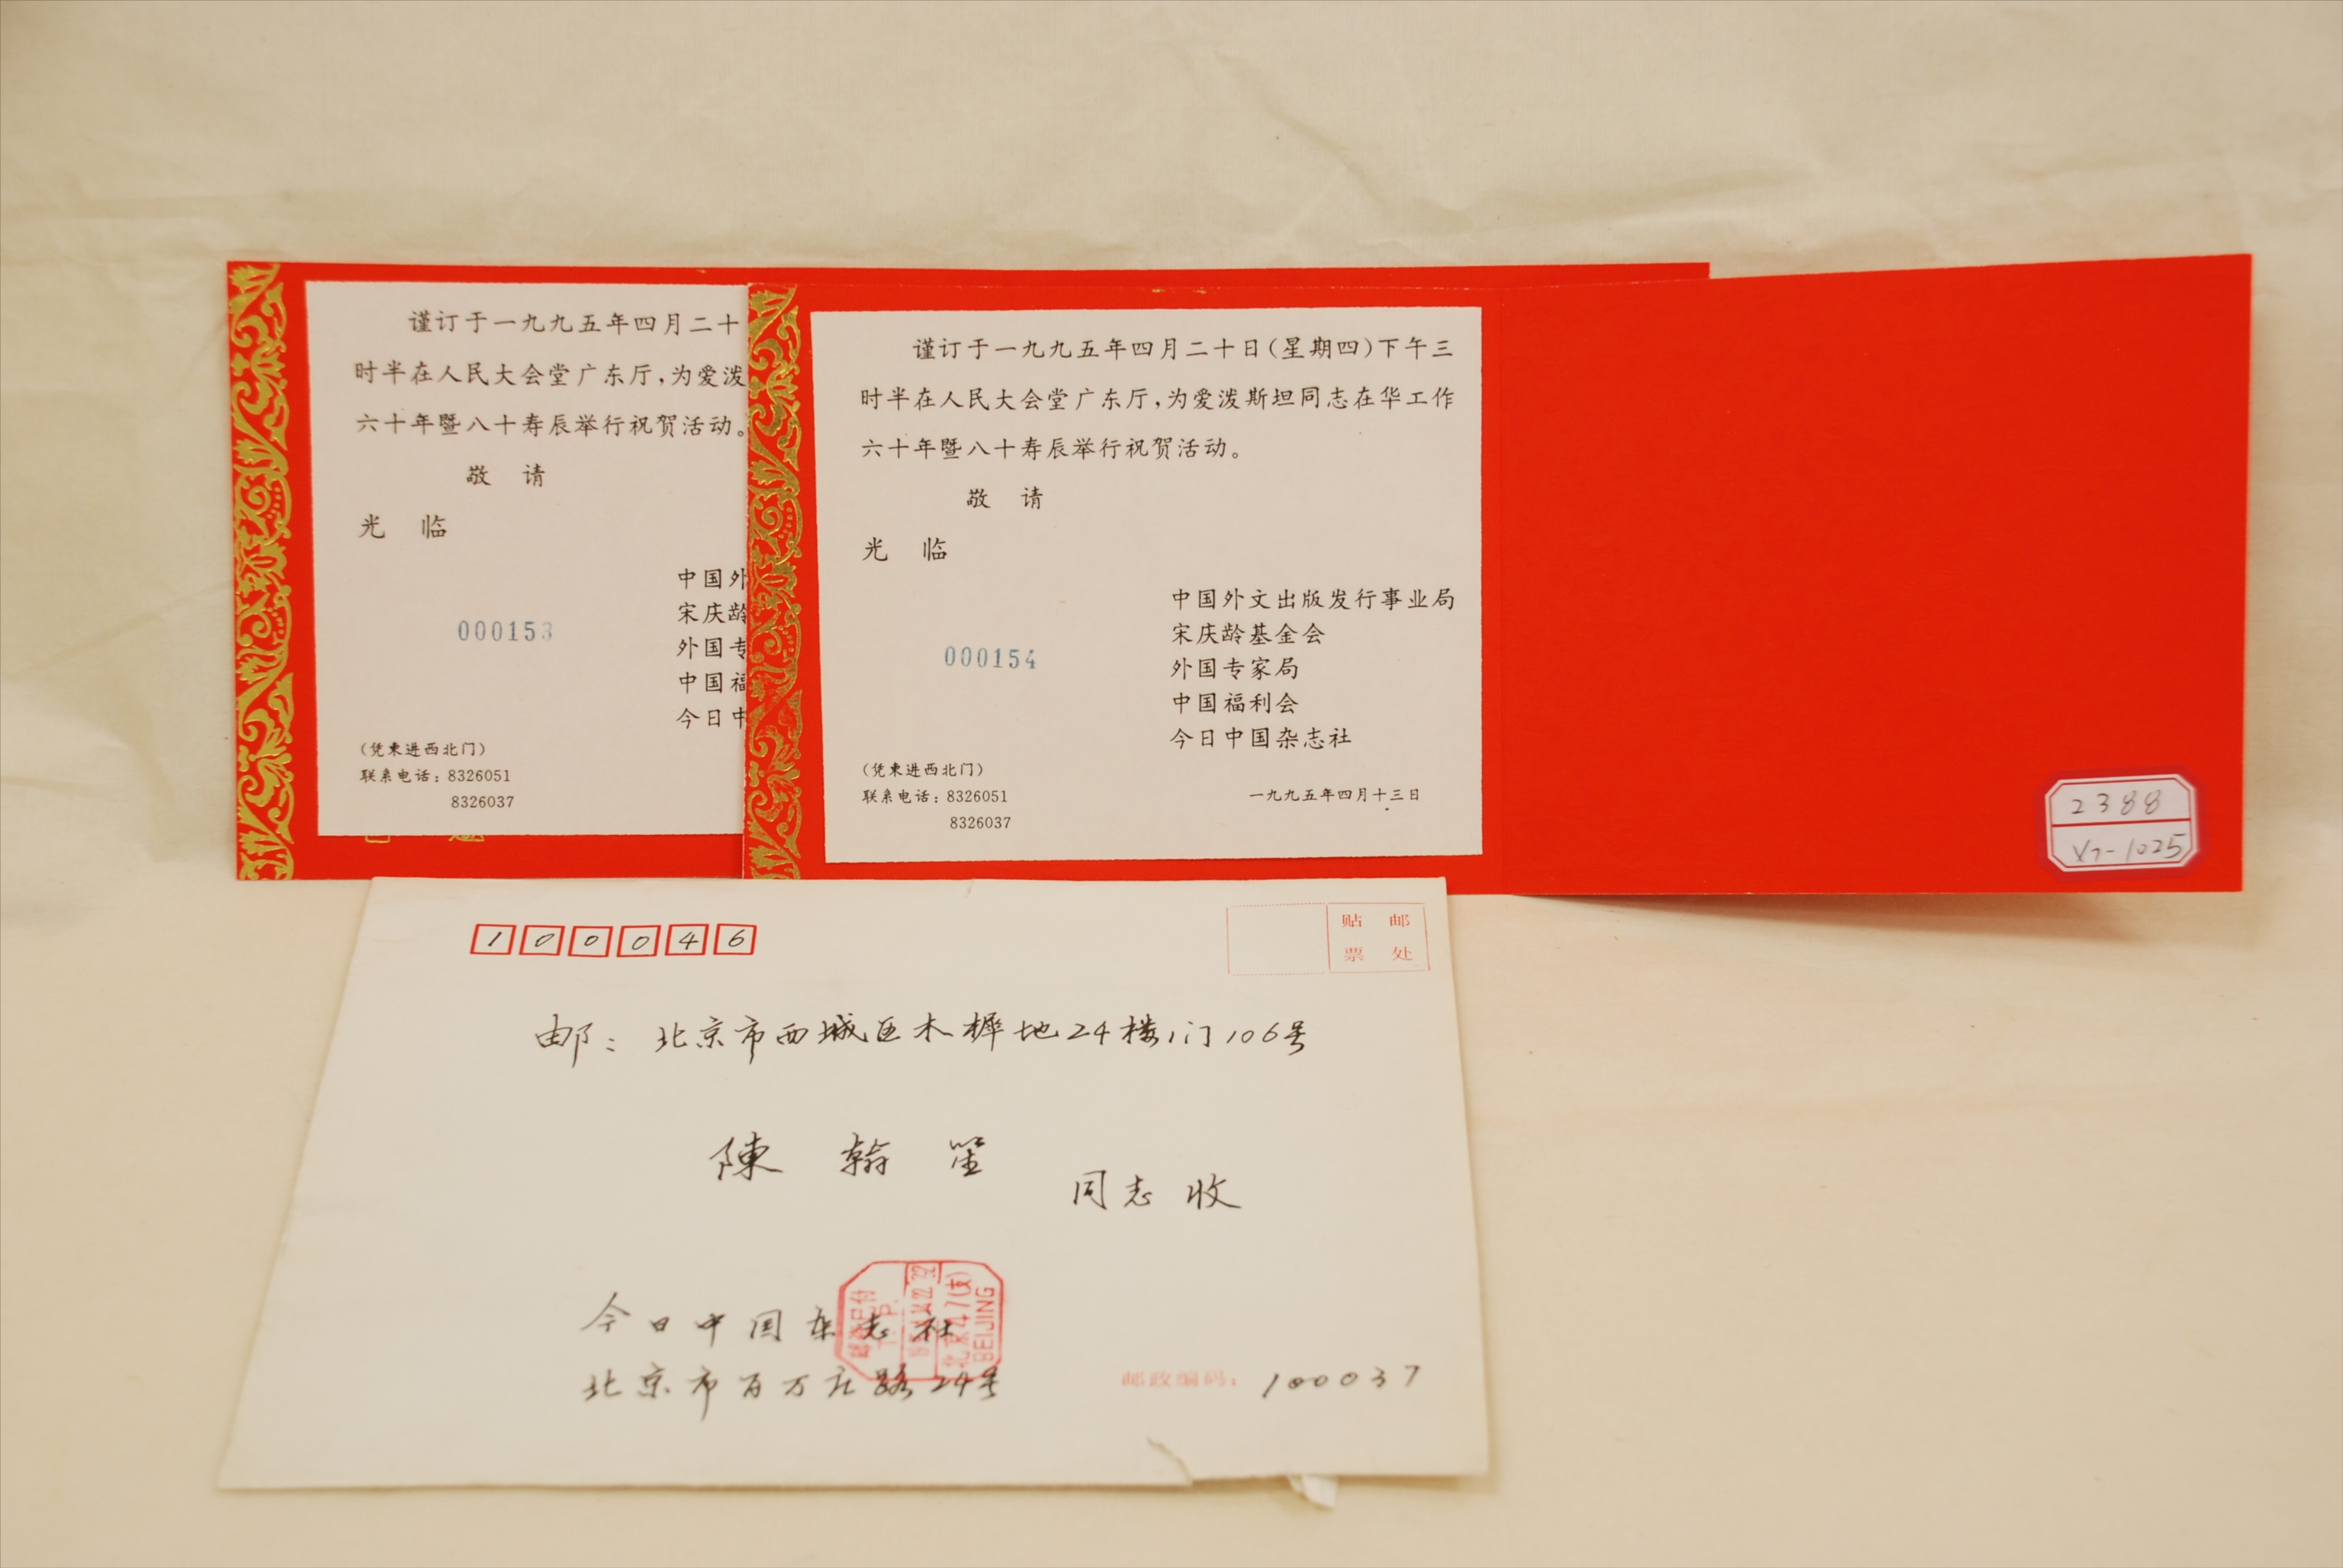 谨订于一九九五年四月二十
时半在人民大会堂广东厅,为爱泼
六十年暨八十寿辰举行祝贺活动。
敬 请
光 临
中国外
宋庆龄
外国专
中国福
今日中
000153
(凭柬进西北门)
联系电话: 8326051
8326037
谨订于一九九五年四月二十日(星期四)下午三
时半在人民大会堂广东厅,为爱泼斯坦同志在华工作
六十年暨八十寿辰举行祝贺活动。
敬 请
光 临
中国外文出版发行事业局
宋庆龄基金会
外国专家局
中国福利会
今日中国杂志社
000154
(凭柬进西北门)
联系电话: 8326051
8326037
一九九五年四月十三日
2388
V7-1025
100046
贴 邮
票 处
邮: 北京市西城区木樨地24楼1门106号
陳 翰 笙
同志 收
今日中国杂志社
北京市百万庄路24号
邮政编码: 100037
北京47(支)
BEIJING